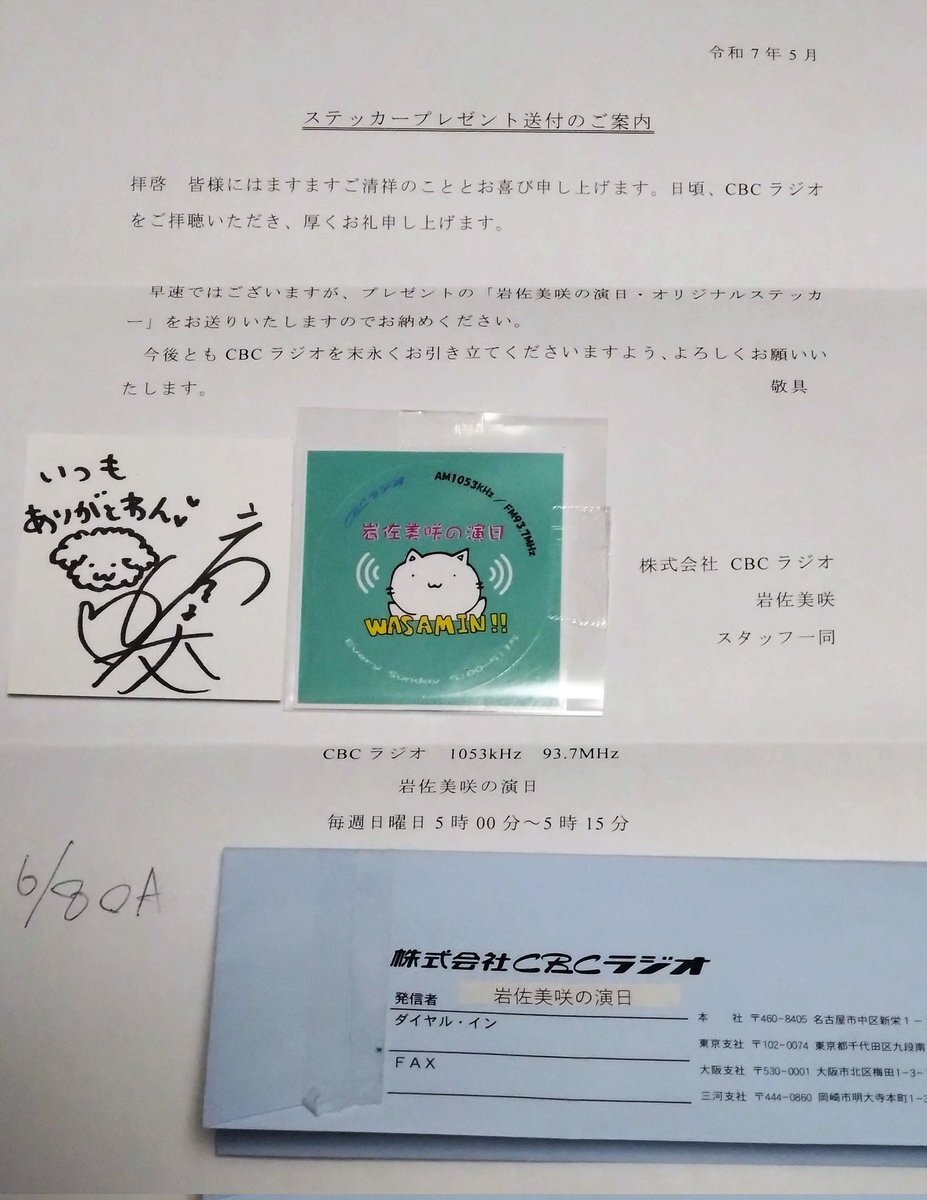 令和7年5月
ステッカープレゼント送付のご案内
拝啓　皆様にはますますご清祥のこととお喜び申し上げます。日頃、CBCラジオ
をご拝聴いただき、厚くお礼申し上げます。
早速ではございますが、プレゼントの「岩佐美咲の演日・オリジナルステッカ
ー」をお送りいたしますのでお納めください。
今後ともCBCラジオを末永くお引き立てくださいますよう、よろしくお願いい
たします。
敬具
いつも
ありがとわん♥
CBCラジオ
AM1053kHz / FM93.7MHz
岩佐美咲の演日
WASAMIN!!
Every Sunday 5:00~5:15
株式会社 CBCラジオ
岩佐美咲
スタッフ一同
CBCラジオ　1053kHz　93.7MHz
岩佐美咲の演日
毎週日曜日5時00分～5時15分
6/8OA
株式会社CBCラジオ
発信者　岩佐美咲の演日
ダイヤル・イン
FAX
本　社 〒460-8405 名古屋市中区新栄1-
東京支社 〒102-0074 東京都千代田区九段南
大阪支社 〒530-0001 大阪市北区梅田1-3-
三河支社 〒444-0860 岡崎市明大寺本町1-3